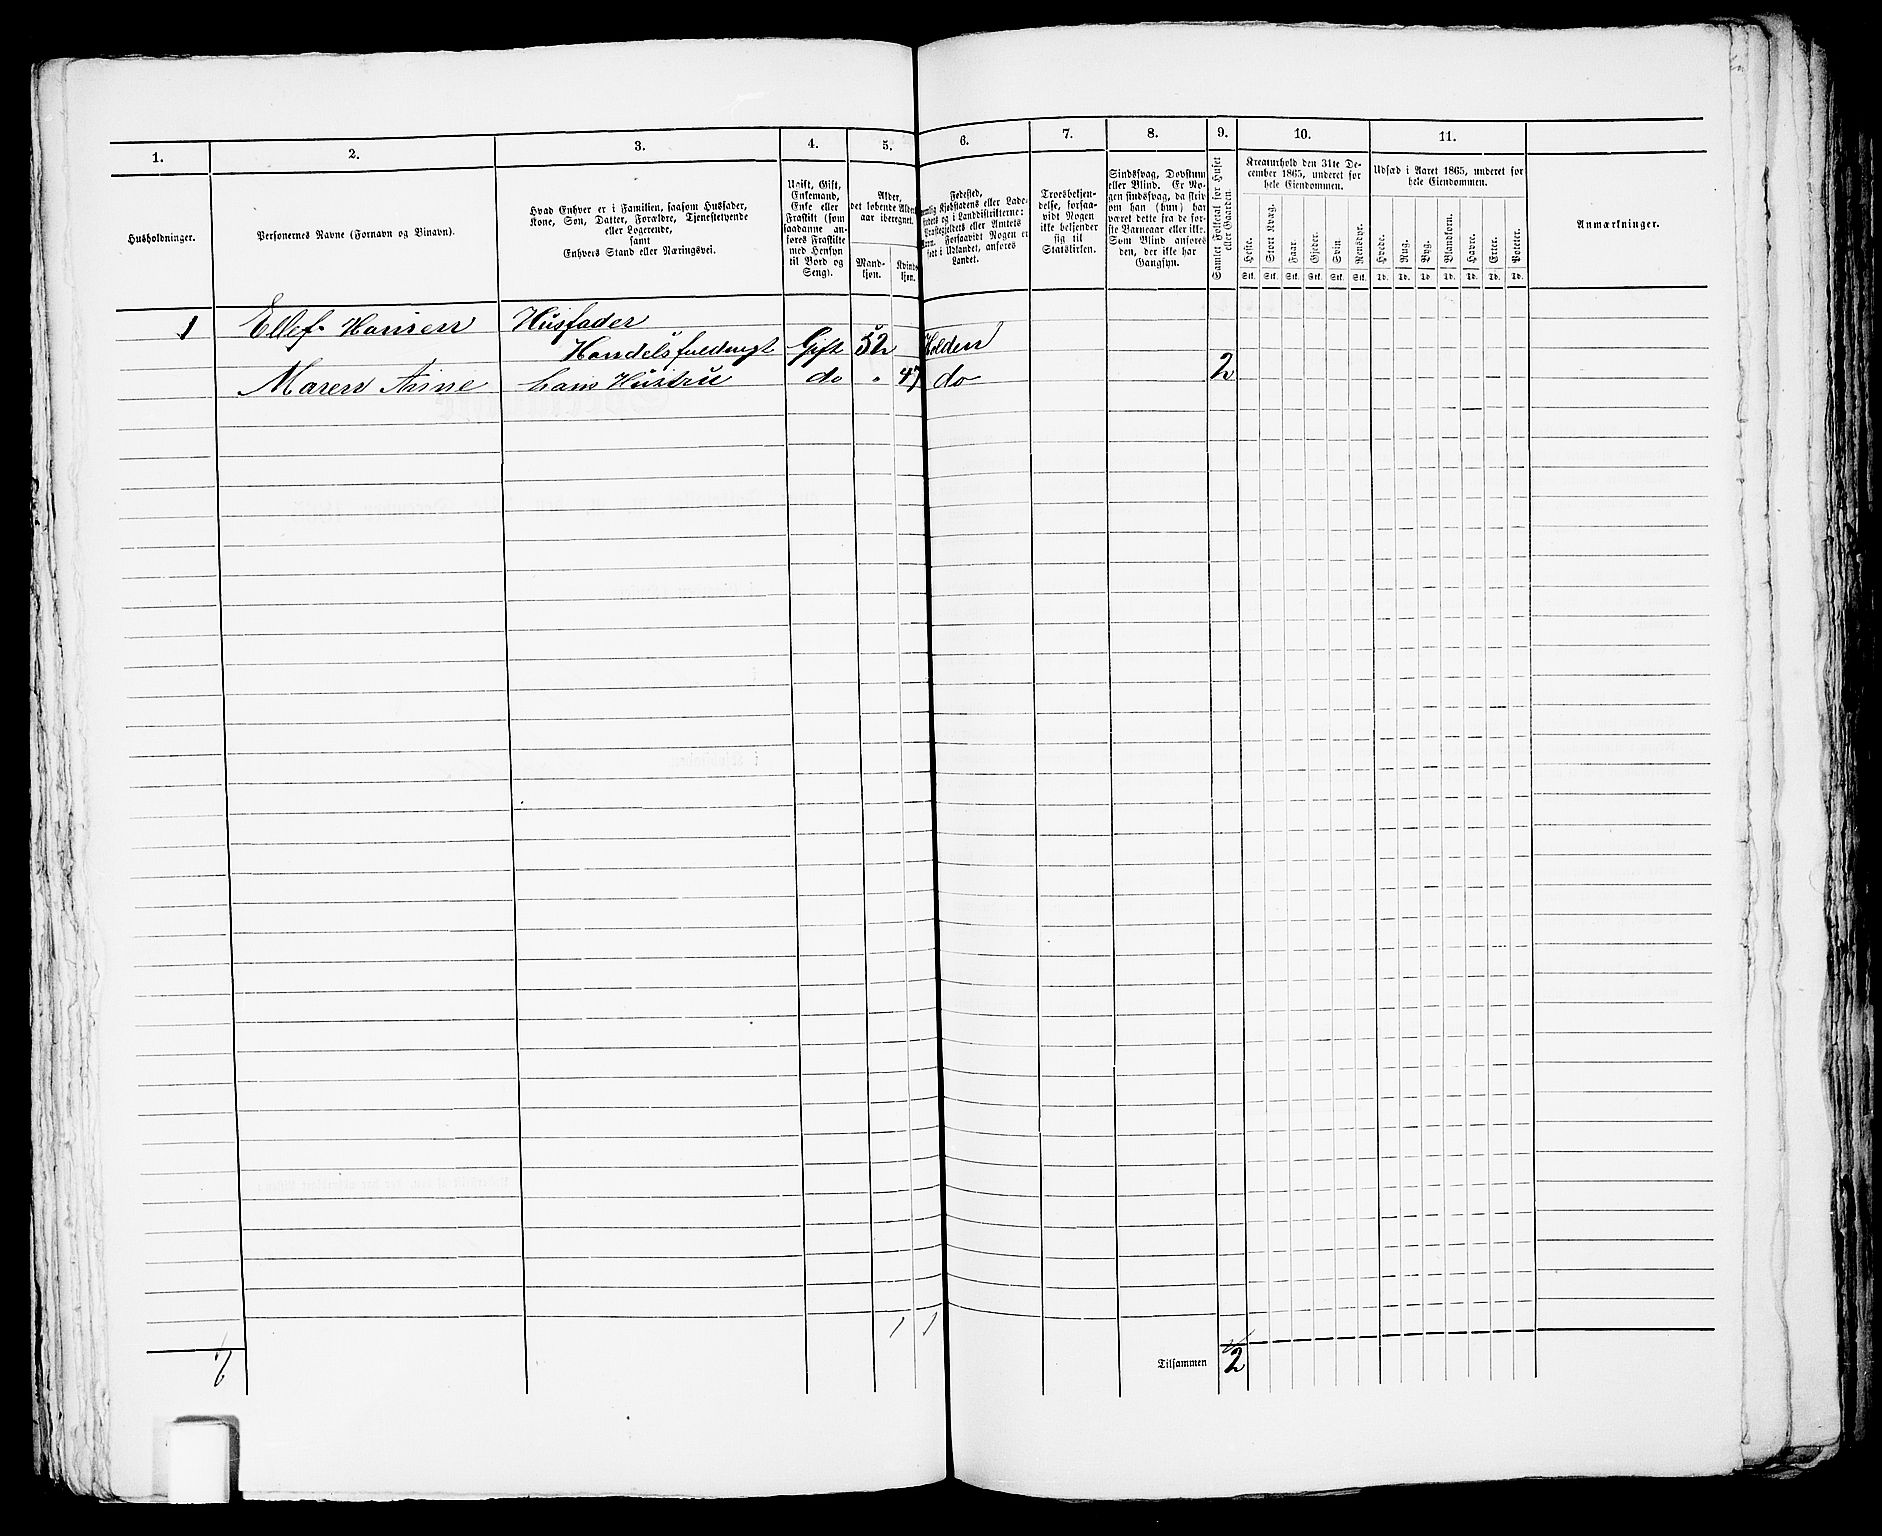 1. 2. 3. 4. 5. 6. 7. 8. 9. 10. 11.
Husholdninger.
Personernes Navne (Fornavn og Binavn).
Hvad Enhver er i Familien, saasom Husfader,
Kone, Søn, Datter, Forældre, Tjenestetyende
eller Logerende,
samt
Enhvers Stand eller Næringsvei.
Ugift, Gift,
Enkemand,
Enke eller
Fraskilt (som
saadanne an-
føres Fraskilte
med Hensyn
til Bord og
Seng).
Alder,
det løbende Alders-
aar iberegnet.
Mand-
kjøn.
Kvind
kjøn.
Fødested,
nemlig Kjøbstadens eller Lade-
stedets og i Landdistrikterne:
Præstegjeldets eller Amtets
Navn. Forsaavidt Nogen er
født i Udlandet, anføres
Landet.
Troesbekjen-
delse, forsaa-
vidt Nogen
ikke bekjender
sig til
Statskirken.
Sindssvag, Døvstum
eller Blind. Er No-
gen sindssvag, da skriv
om han (hun) har
været dette fra de før-
ste Barneaar eller ikke.
Som Blind anføres
den, der ikke har
Gangsyn.
Samlet Folketal for Huset
eller Gaarden.
Kreaturhold den 31te De-
cember 1865, underet for
hele Eiendommen.
Heste. Stort Kvæg. Faar. Gjeder. Svin. Rensdyr.
Stk. Stk. Stk. Stk. Stk. Stk.
Udsæd i Aaret 1865, underet for
hele Eiendommen.
Hvede. Rug. Byg. Blandkorn. Havre. Erter. Poteter.
Td. Td. Td. Td. Td. Td. Td.
Anmærkninger.
1 Ellef Hansen Husfader
Handelsfuldmegt Gift 52 Holden
Maren Anne hans Hustru do " 47 do 2
1 1
Tilsammen 2